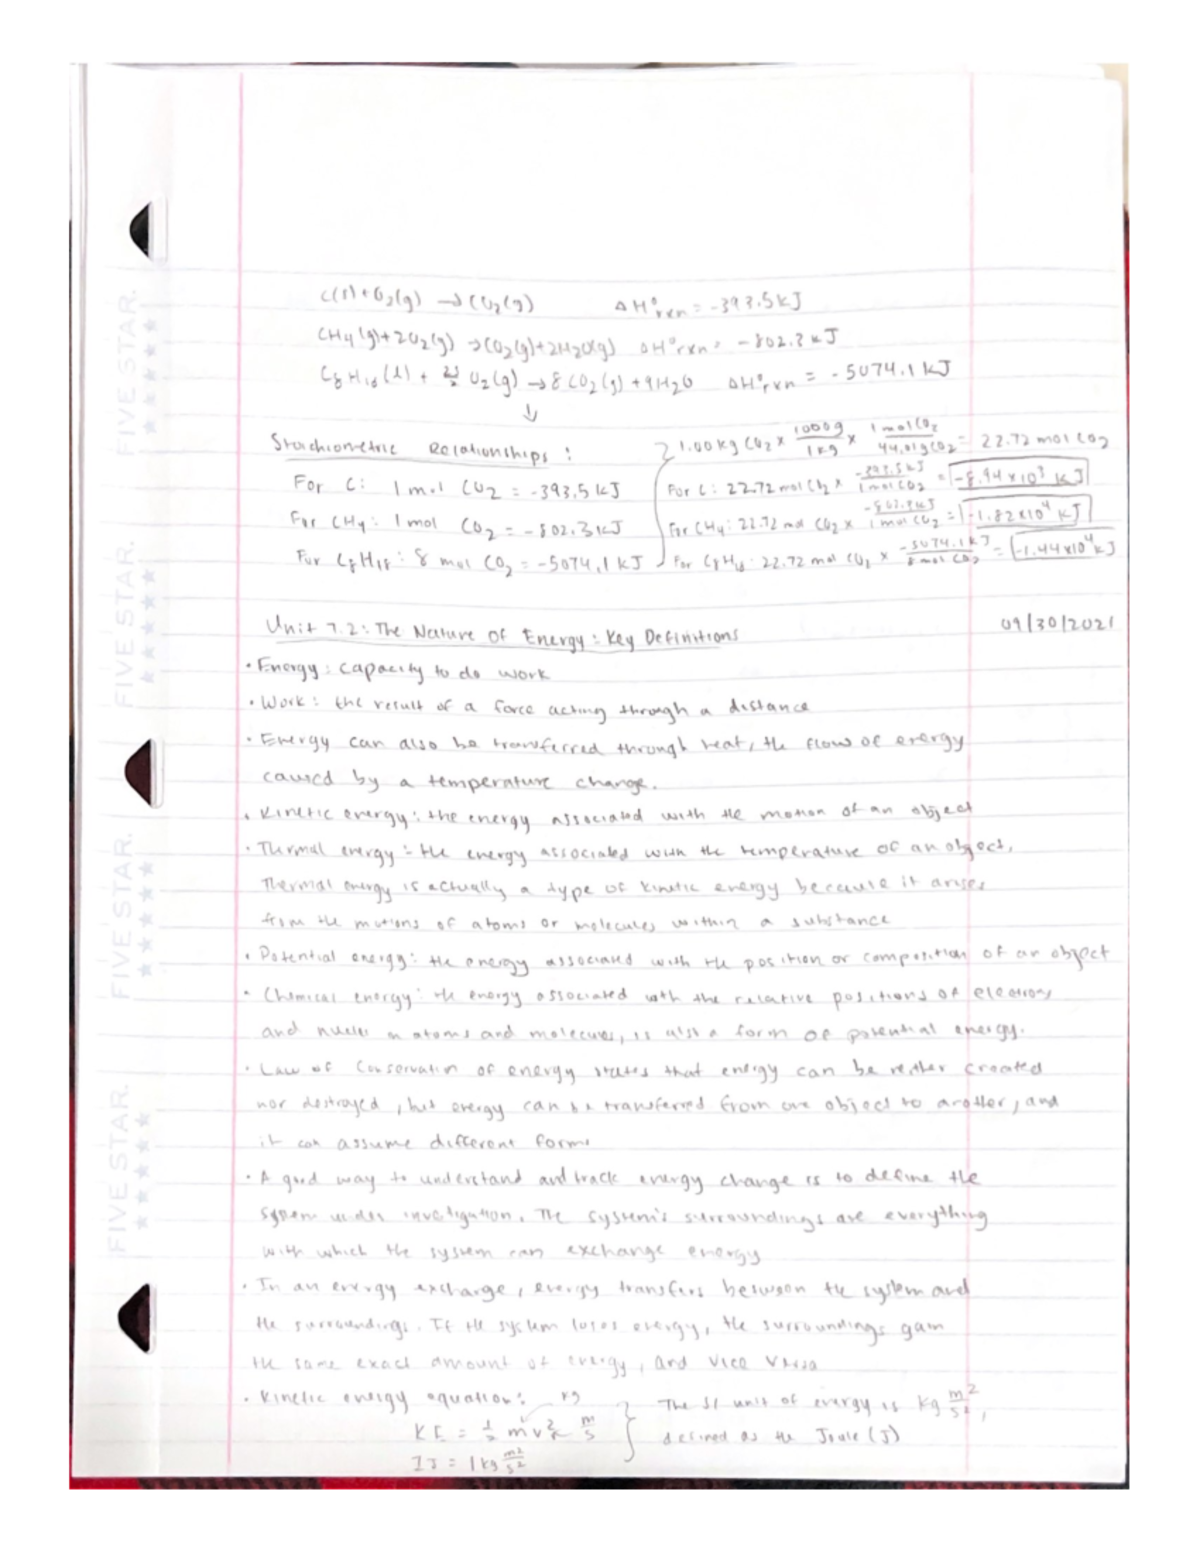 C(s)+O₂(g) → CO₂(g) ΔH°rxn = -393.5 kJ
CH₄(g)+2O₂(g) → CO₂(g)+2H₂O(g) ΔH°rxn = -802.3 kJ
C₈H₁₈(l) + 25/2 O₂(g) → 8CO₂(g) + 9H₂O ΔH°rxn = -5074.1 kJ
↓
Stoichiometric Relationships:
For C: 1 mol CO₂ = -393.5 kJ
For CH₄: 1 mol CO₂ = -802.3 kJ
For C₈H₁₈: 8 mol CO₂ = -5074.1 kJ
1.00 kg CO₂ × 1000g/1kg × 1 mol CO₂/44.01g CO₂ = 22.72 mol CO₂
For C: 22.72 mol CO₂ × -393.5 kJ/1 mol CO₂ = -8.94 × 10³ kJ
For CH₄: 22.72 mol CO₂ × -802.3 kJ/1 mol CO₂ = -1.82×10⁴ kJ
For C₈H₁₈: 22.72 mol CO₂ × -5074.1 kJ/8 mol CO₂ = -1.44×10⁴ kJ
Unit 7.2: The Nature of Energy: Key Definitions 09/30/2021
• Energy: capacity to do work
• Work: the result of a force acting through a distance
• Energy can also be transferred through heat, the flow of energy
caused by a temperature change.
• Kinetic energy: the energy associated with the motion of an object
• Thermal energy: the energy associated with the temperature of an object.
Thermal energy is actually a type of kinetic energy because it arises
from the motions of atoms or molecules within a substance
• Potential energy: the energy associated with the position or composition of an object
• Chemical energy: the energy associated with the relative positions of electrons
and nuclei in atoms and molecules, is also a form of potential energy.
• Law of Conservation of energy states that energy can be neither created
nor destroyed, but energy can be transferred from one object to another, and
it can assume different forms
• A good way to understand and track energy change is to define the
system under investigation. The system's surroundings are everything
with which the system can exchange energy
• In an energy exchange, energy transfers between the system and
the surroundings. If the system loses energy, the surroundings gain
the same exact amount of energy, and vice versa
• Kinetic energy equation: kg
KE = 1/2 mv² m/s
1J = 1 kg m²/s²
The SI unit of energy is kg m²/s²,
defined as the Joule (J)
FIVE STAR.
FIVE STAR.
FIVE STAR.
FIVE STAR.